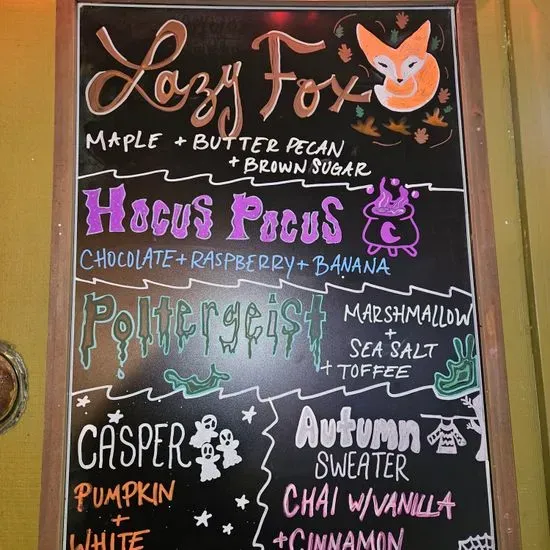 Lazy Fox
MAPLE + BUTTER PECAN
+ BROWN SUGAR
HOCUS POCUS
CHOCOLATE + RASPBERRY + BANANA
Poltergeist
MARSHMALLOW
+
SEA SALT
+ TOFFEE
CASPER
PUMPKIN
+
WHITE
Autumn
SWEATER
CHAI W/VANILLA
+CINNAMON